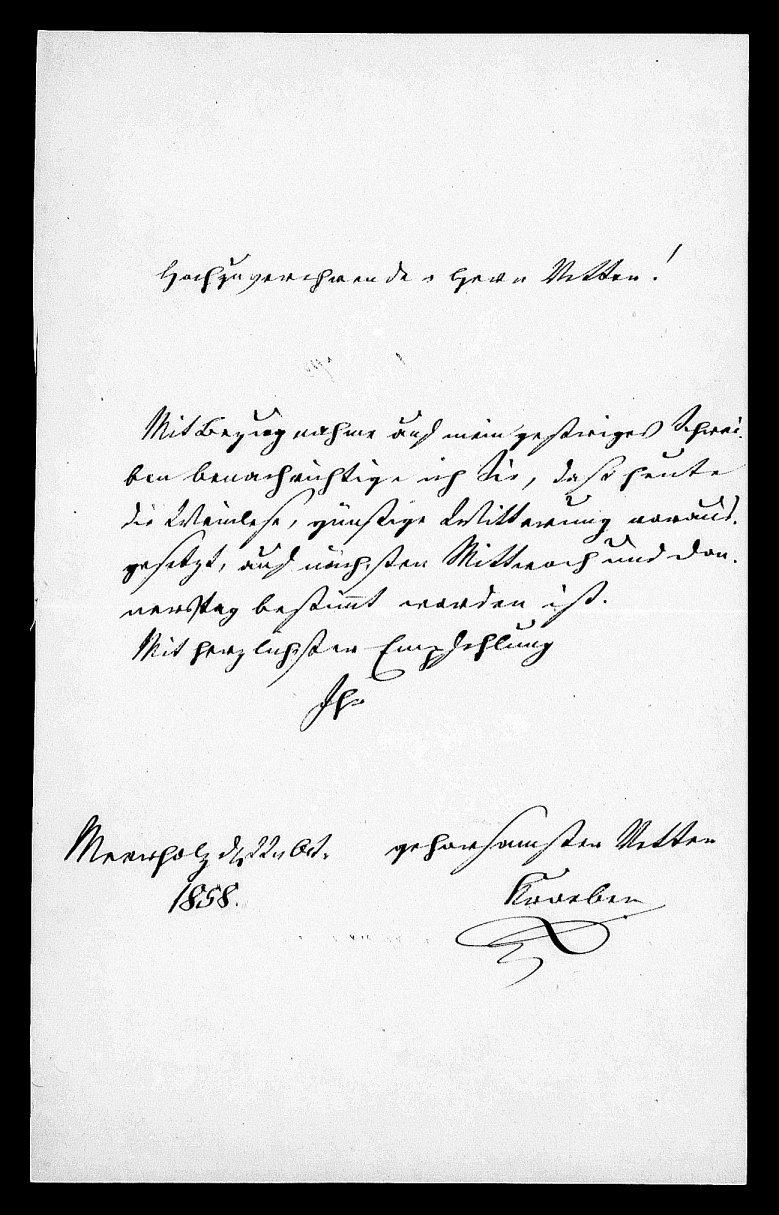 Hochzuverehrender Herr Vetter!
Mit Bezugnahme auf mein gestriges Schrei-
ben benachrichtige ich Sie, daß heute
die Weinlese, günstige Witterung voraus-
gesetzt, auf nächsten Mittwoch und Don-
nerstag bestimmt worden ist.
Mit herzlichster Empfehlung
Ihr
gehorsamster Vetter
Kroeber
Meerholz d. 22 Oct.
1858.